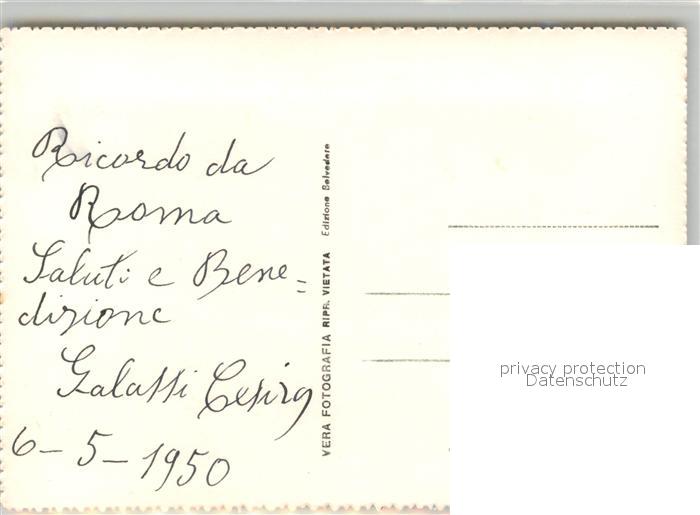 Ricordo da
Roma
Saluti e Bene=
dizione
Galassi Cesira
6-5-1950
VERA FOTOGRAFIA RIPR. VIETATA Edizione Belvedere
privacy protection
Datenschutz